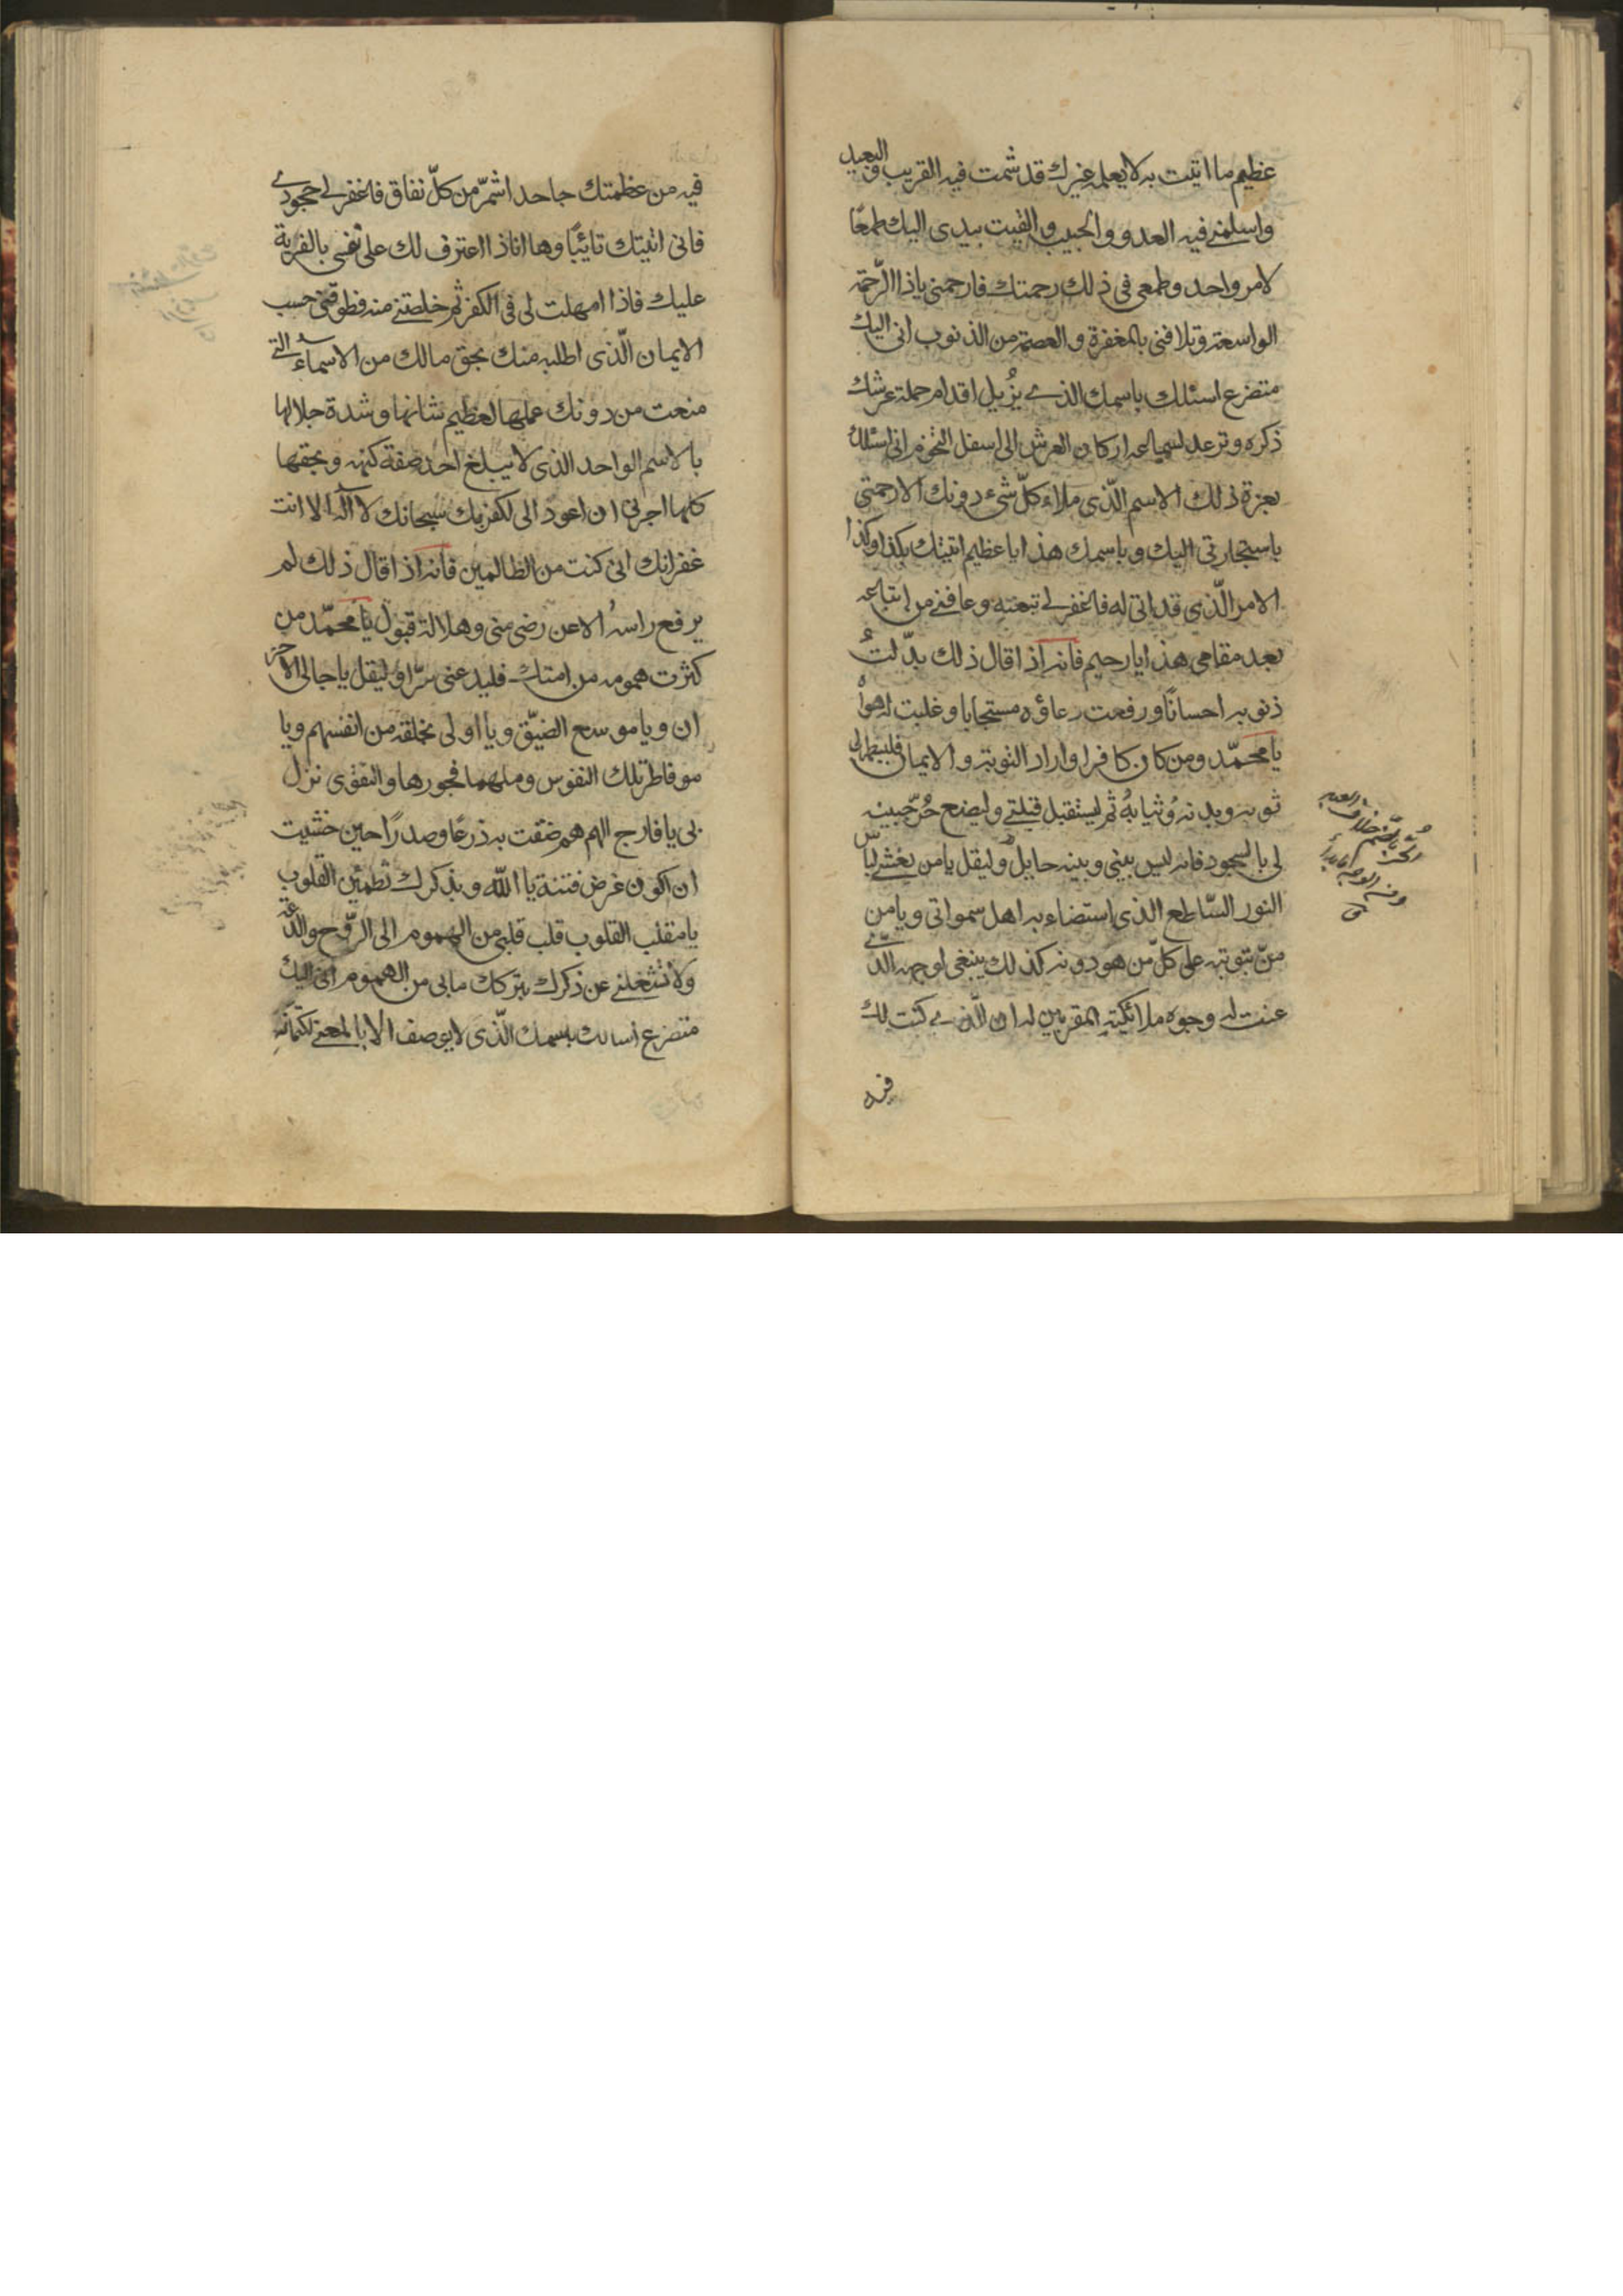 عظيم ما اتيت به لا يعلمه غيرك قد شمت فيه القريب والبعيد
واسلمنے فيه العدو والحبيب والقيت بيدى اليك طمعًا
لامر واحد وطمعى فى ذلك رحمتك فارحمنى ياذا الرّحمة
الواسعة وتلافنى بالمغفرة والعصمة من الذنوب انى اليك
متضرع اسئلك باسمك الذے يُزيل اقدام حملة عرشك
ذكره وترعد لسماعه اركان العرش الى اسفل التخوم انى اسئلك
بعزة ذلك الاسم الّذى ملاء كلّ شىء دونك الا رحمتى
باستجارتى اليك وباسمك هذا يا عظيم اتيتك بكذا وكذا
الامر الّذى قد اتى له فاغفر لے تبعته وعافنے من اتباعه
بعد مقامى هذا يا رحيم فانه اذا قال ذلك بدّلتُ
ذنوبه احسانًا ورفعت دعاؤه مستجابا وغلبت له هواهُ
يا محمّد ومن كان كافرا واراد التوبة والايمان فليطهر لى
ثوبه وبدنه وثيابهُ ثم ليستقبل قبلتے وليضع حُرّ جبينه
لى بالسجود فانه ليس بينى وبينه حايل وليقل يا من تغشے لباس
النور السّاطع الذى استضاء به اهل سمواتى ويا من
منّ بتوبته على كلّ من هو دونه كذلك ينبغى لوجهه الّذے
عنت له وجوه ملائكته المقربين له ان الّذے كنت لك
فيه
فيه من عظمتك جاحدا شمرّ من كلّ نفاق فاغفر لے جحودے
فانى اتيتك تائبًا وها اناذا اعترف لك على نفسى بالفرية
عليك فاذا امهلت لى فى الكفر ثم خلصتنے منه فطوقنى حسب
الايمان الّذى اطلبه منك بحق مالك من الاسماء التے
منعت من دونك علمها لعظيم شانها وشدة جلالها
بالاسم الواحد الذى لا يبلغ احد صفة كنهه وبحقها
كلها اجرنى ان اعود الى لكفر بك سبحانك لا اله الا انت
غفرانك انى كنت من الظالمين فانه اذا قال ذلك لم
يرفع راسهُ الا عن رضى منى وهلا له قبول يا محمّد من
كثرت همومه من امتك فليدعنى سرّا وليقل يا جالى الاحز
ان ويا موسع الضيّق ويا اولى بخلقه من انفسهم ويا
فاطر تلك النفوس وملهمها فجورها والتقوى نزل
بى يا فارج الهم هم ضقت به ذرعًا وصدرًا حين خشيت
ان اكون غرض فتنة يا اللّه وبذكرك تطمئن القلوب
يا مقلب القلوب قلب قلبى من الهموم الى الرّوح والدّعة
ولا تشغلنے عن ذكرك بتركك مابى من الهموم انى اليك
متضرع اسالك باسمك الّذى لا يوصف الا بالمعنے لكتمانه